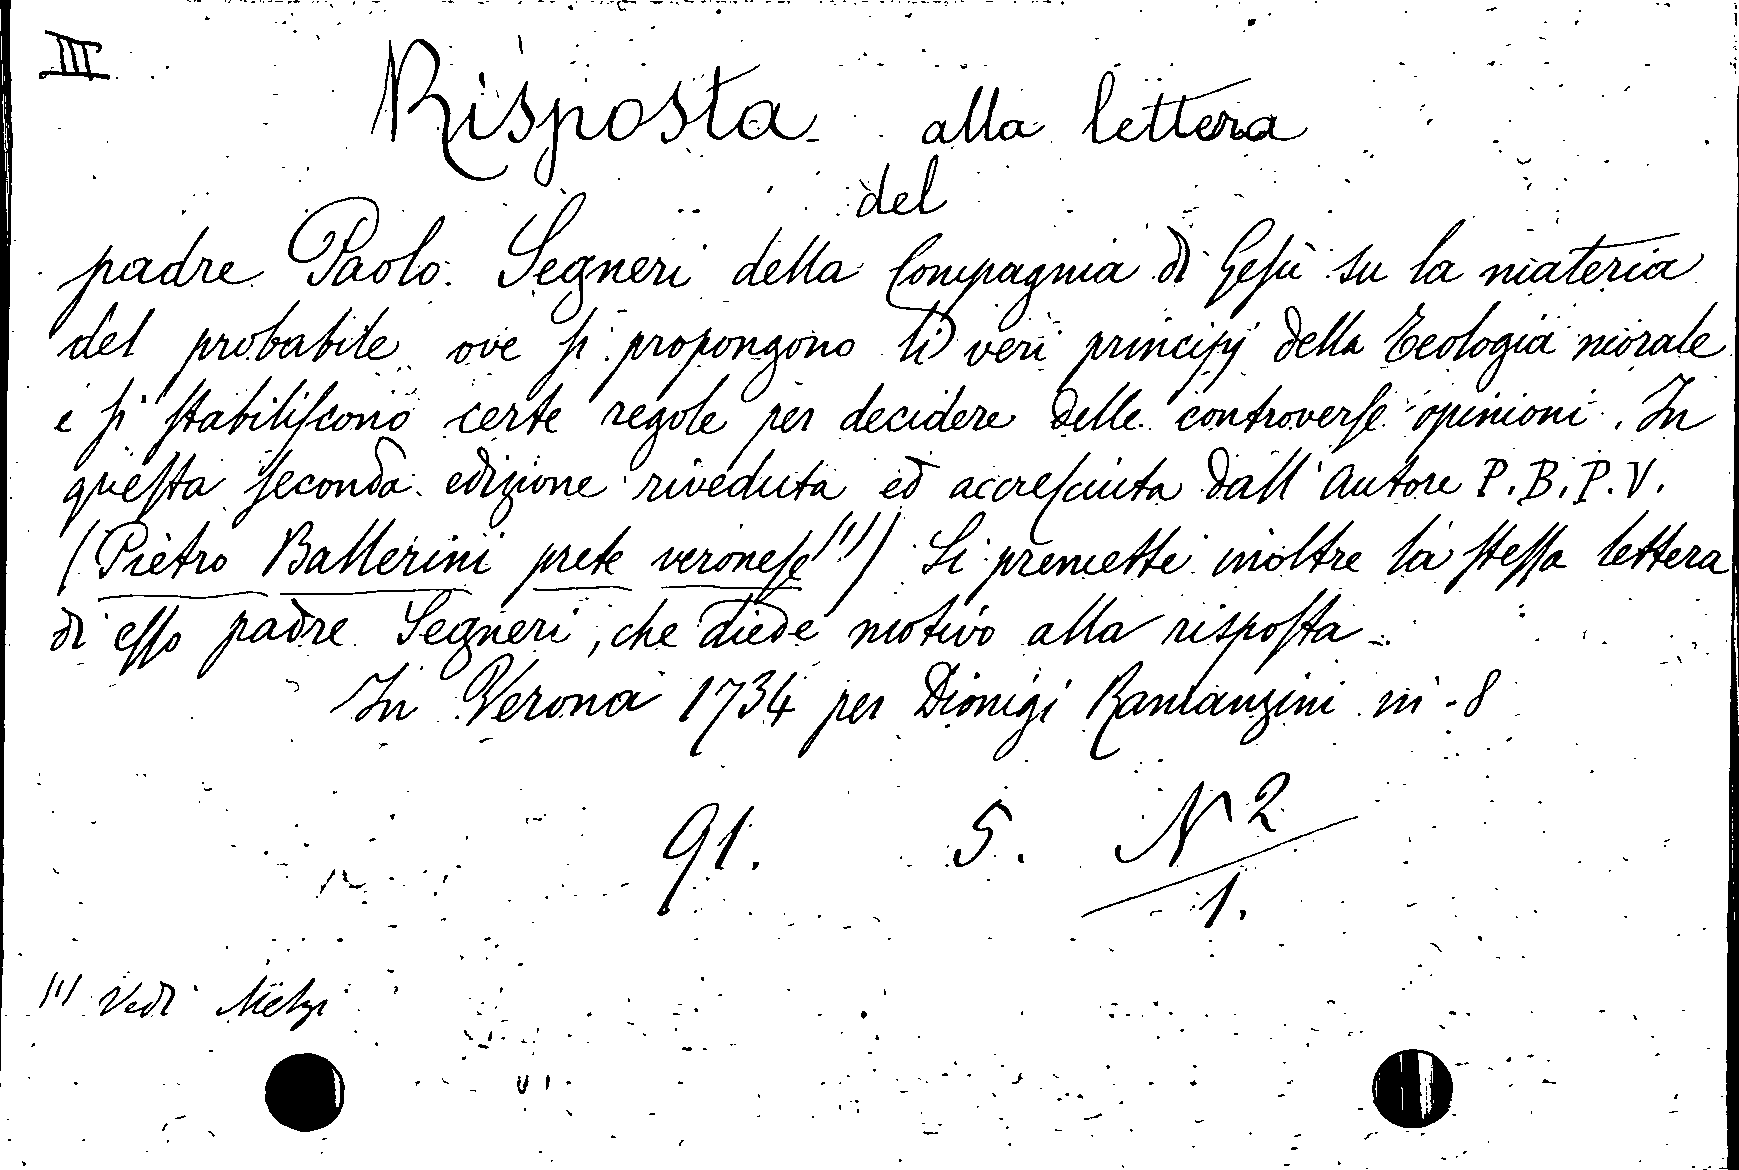 III
Risposta alla lettera
del
padre Paolo Segneri della Compagnia di Gesù su la materia
del probabile ove si propongono li veri principj della Teologia morale
e si stabiliscono certe regole per decidere delle controverse opinioni. In
questa seconda edizione riveduta ed accresciuta dall'autore P.B.P.V.
(Pietro Ballerini prete veronese(1)) Si premette inoltre la stessa lettera
di esso padre Segneri, che diede motivo alla risposta -
In Verona 1734 per Dionigi Ramanzini in-8
91. 5. N 2/1.
(1) Vedi Melzi